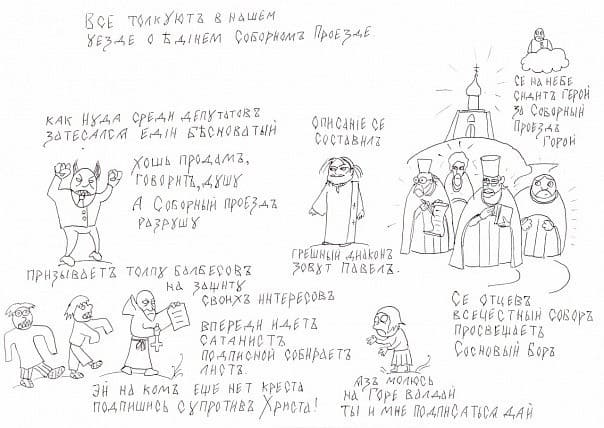 ВСЕ ТОЛКУЮТЪ В НАШЕМ
УЕЗДЕ О ѢДІНЕМ СОБОРНОМЪ ПРОЕЗДЕ
СЕ НА НЕБЕ
СИДИТЪ ГЕРОЙ
ЗА СОБОРНЫЙ
ПРОЕЗДЪ
ГОРОЙ
КАК НУДА СРЕДИ ДЕПУТАТОВЪ
ЗАТЕСАЛСЯ ЕДІН БѢСНОВАТЫЙ
ХОШЬ ПРОДАМЪ,
ГОВОРИТЪ, ДУШУ
А СОБОРНЫЙ ПРОЕЗДЪ
РАЗРУШУ
ОПИСАНІЕ СЕ
СОСТАВИЛЪ
ГРЕШНЫЙ ДИАКОНЪ
ЗОВУТ ПАВЕЛЪ.
ПРИЗЫВАЕТЪ ТОЛПУ БАЛБЕСОВЪ
НА ЗАЩИТУ
СВОИХЪ ИНТЕРЕСОВЪ
ВПЕРЕДИ ИДЕТЪ
САТАНИСТЪ
ПОДПИСНОЙ СОБИРАЕТЪ
ЛИСТЪ.
ЭЙ НА КОМЪ ЕЩЕ НЕТ КРЕСТА
ПОДПИШИСЬ СУПРОТИВЪ ХРИСТА!
СЕ ОТЦЕВЪ
ВСЕЧЕСТНЫЙ СОБОРЪ
ПРОСВЕЩАЕТЪ
СОСНОВЫЙ БОРЪ
АЗЪ МОЛЮСЬ
НА ГОРЕ ВАЛДАЙ
ТЫ И МНЕ ПОДПИСАТЬСЯ ДАЙ